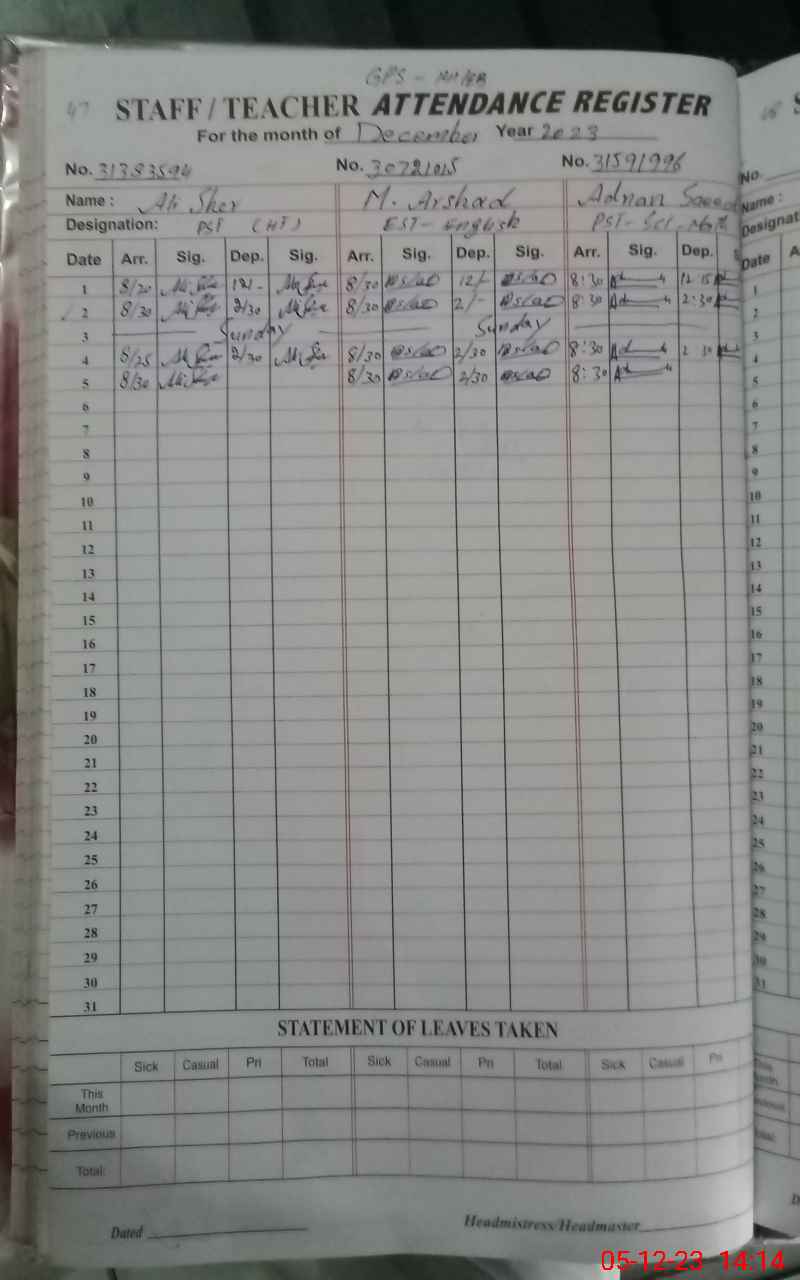 GPS -
47 STAFF / TEACHER ATTENDANCE REGISTER
For the month of December Year 2023
No. 31383594 No. 30721015 No. 31591996
Name : Ali Sher M. Arshad Adnan Saeed
Designation: PST (HT) EST- English PST- Sci- Math
Date Arr. Sig. Dep. Sig. Arr. Sig. Dep. Sig. Arr. Sig. Dep.
1 8/20 12/- 8/30 12/- 8:30 12:15
2 8/30 2/30 8/30 2/- 8:30 2:30
3 Sunday Sunday
4 8/25 2/30 8/30 2/30 8:30 2 30
5 8/30 8/30 2/30 8:30
6
7
8
9
10
11
12
13
14
15
16
17
18
19
20
21
22
23
24
25
26
27
28
29
30
31
STATEMENT OF LEAVES TAKEN
Sick Casual Pri Total Sick Casual Pri Total Sick Casual Pri
This
Month
Previous
Total:
Dated Headmistress/Headmaster
No.
Name :
Designat
Date A
1
2
3
4
5
6
7
8
9
10
11
12
13
14
15
16
17
18
19
20
21
22
23
24
25
26
27
28
29
30
31
05-12-23 14:14